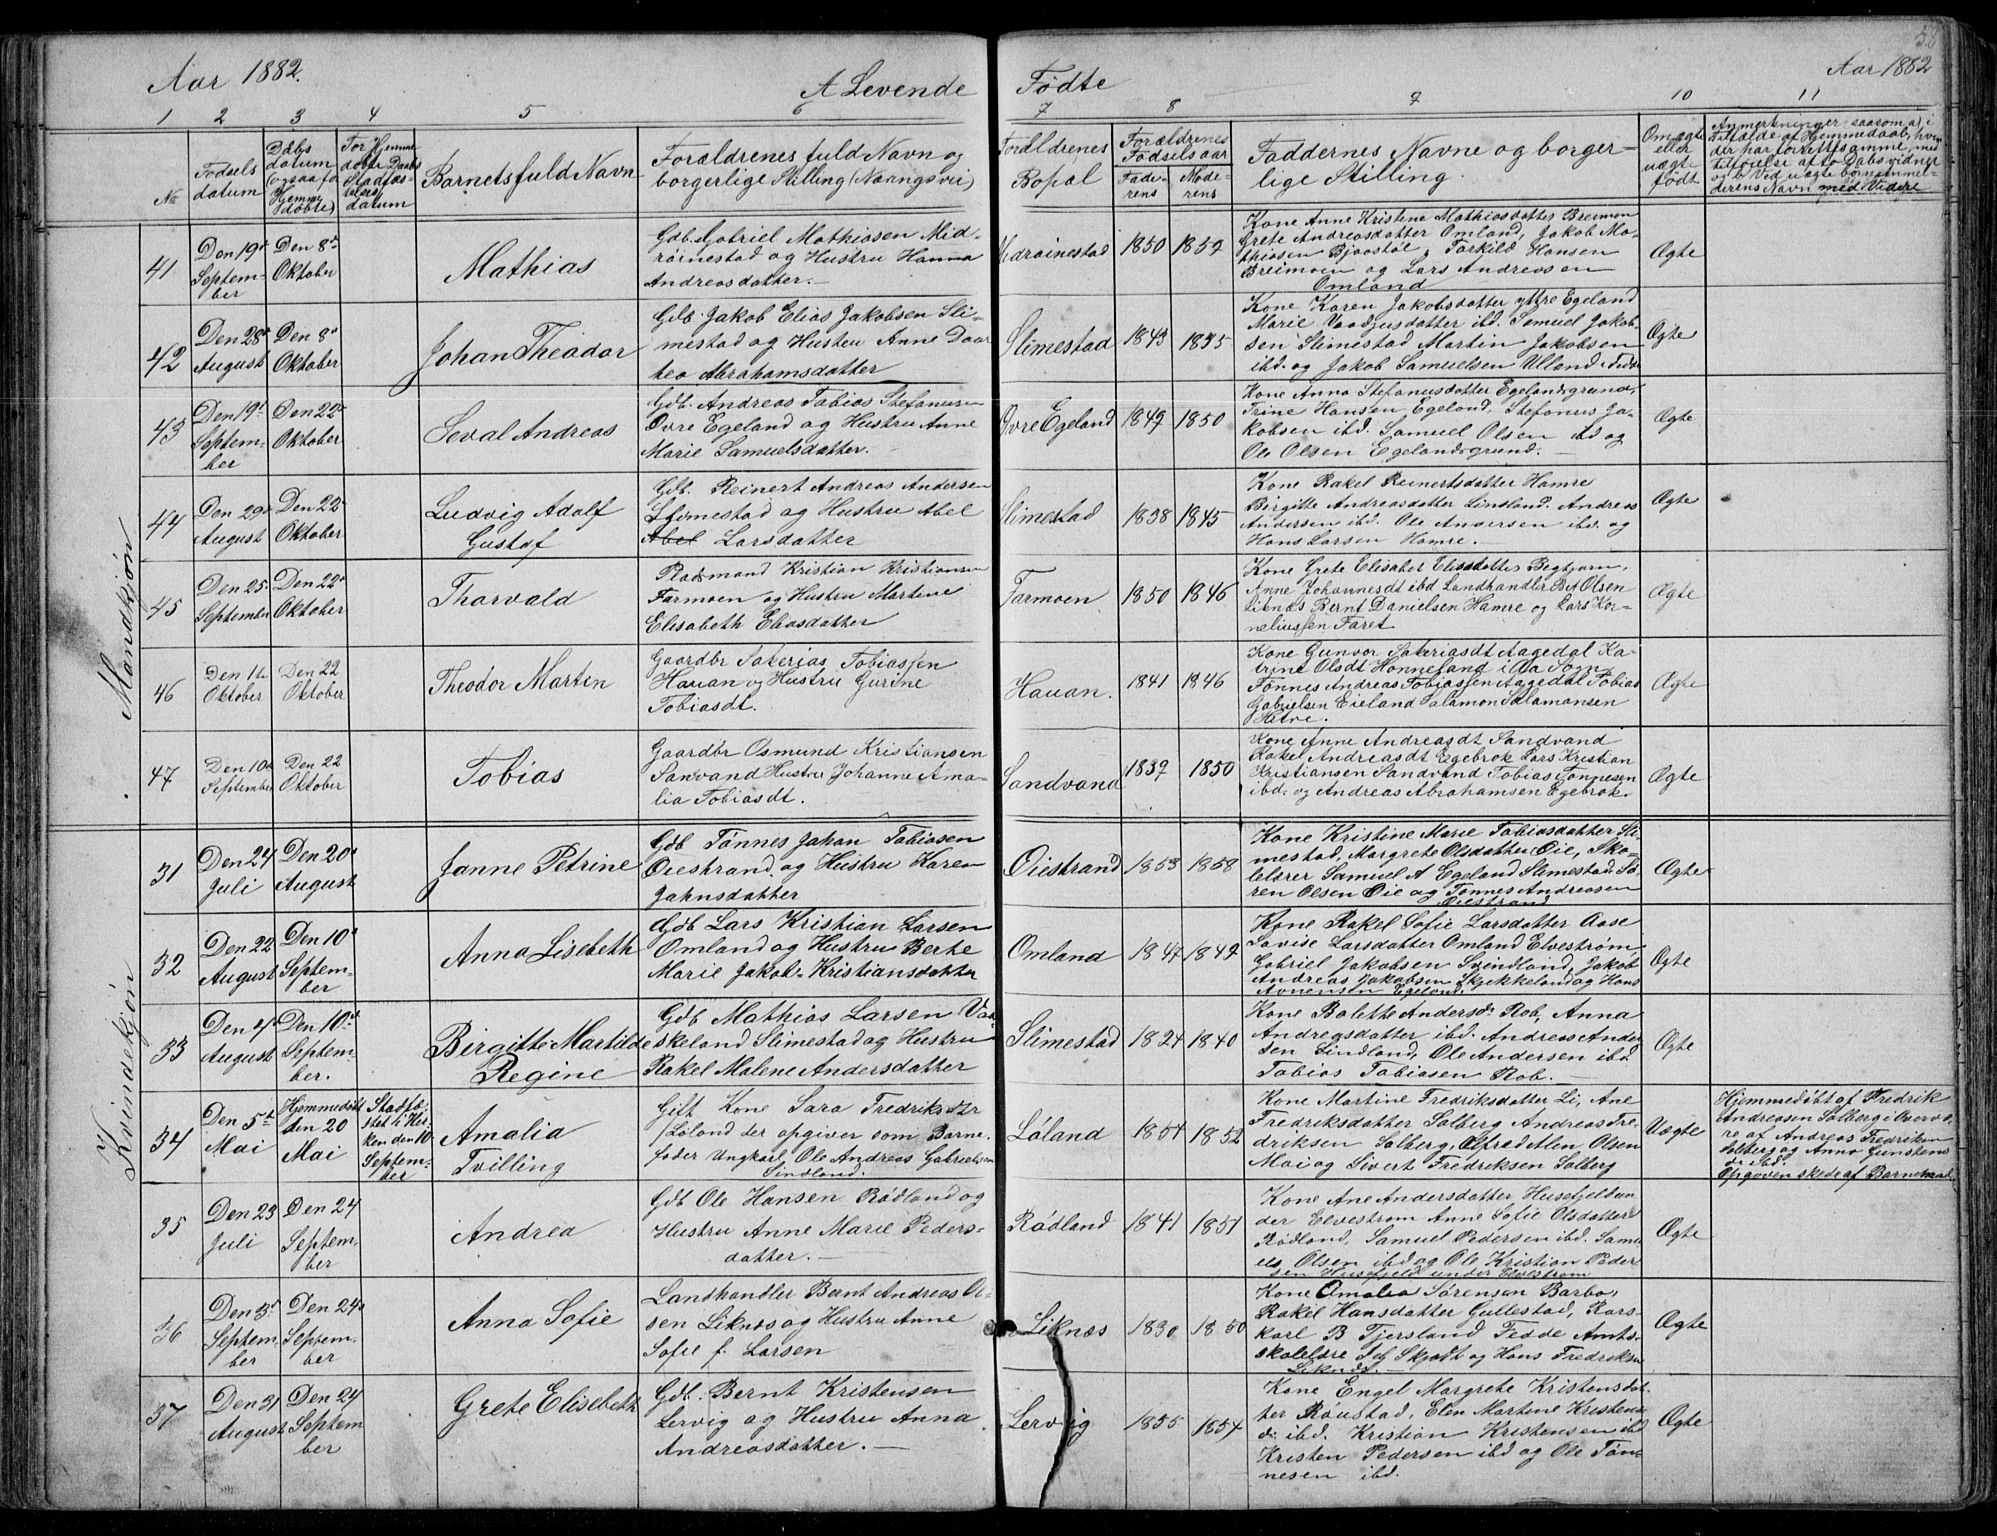 Aar 1882.
A Levende Fødte
Aar 1882
1 2 3 4 5 6 7 8 9 10 11
No
Fødsels
datum
Daabs
datum
Hjemme
døbte)
For Hjemme
døbte Daabs
datum
Barnets fuld Navn
Forældrenes fuld Navn og
borgerlige Stilling (Næringsvei)
Forældrenes
Bopal
Forældrenes
Fødselsaar
Fade-
rens
Mode-
rens
Faddernes Navne og borger-
lige Stilling.
Om ægte
eller
uægte
født
Anmerkninger, saasom at i
Tilfælde af Hjemmedaab, hvem
der har forrettet samme, med
Tilføielse af to Dabsvidner
derens Navn med Videre
Mandkjøn
41
Den 19de
Septem-
ber
Den 8de
Oktober
Mathias
Gdb. Gabriel Mathiasen Mid-
røinestad og Hustru Hanna
Andreasdatter.-
Midrøinestad
1850 1859
Kone Anne Kristene Mathiasdatter Breimoen
Grete Andreasdatter Omland, Jakob Ma-
thiasen Bjaastøl, Torkild Hansen
Breimoen og Lars Andreasen
Omland
Ægte
42
Den 28de
August
Den 8de
Oktober
Johan Theodor
Gdb. Jakob Elias Jakobsen Sli-
mestad og Hustru Anne Daar
tea Abrahamsdatter
Slimestad
1843 1845
Kone Karen Jakobsdatter yttre Egeland
Marie datter ibd. Samuel Jakob-
sen Slimestad Martin Jakobsen
ibd. og Jakob Samuelsen Ulland
Ægte
43
Den 19de
Septem-
ber
Den 22de
Oktober
Seval Andreas
Gdb. Andreas Tobias Stefanusen
Øvre Egeland og Hustru Anne
Marie Samuelsdatter.
Øvre Egeland
1849 1850
Kone Anna Stefanusdatter Egelandsgrund,
Trine Hansen Egeland, Stefanus Ja-
kobsen ibd. Samuel Olsen ibd og
Ole Olsen Egelandsgrund.-
Ægte
44
Den 29de
August
Den 22de
Oktober
Ludvig Adolf
Gustaf
Gdb. Reinert Andreas Andersen
Slimestad og Hustru Abel
Abel Larsdatter
Slimestad
1838 1845
Kone Rakel Reinertsdatter Hamre
Birgitte Andreasdatter Lindland. Andreas
Andersen ibd. Ole Andersen ibd. og
Hans Larsen Hamre.-
Ægte
45
Den 25.
September
Den 22de
Oktober
Thorvald
Pladsmand Kristian Kristiansen
Farmoen og Hustru Martine
Elisabeth Eliasdatter
Farmoen
1850 1846
Kone Grete Elisabet Eliasdatter
Anne Johannesdt ibd Landhandler Bt Olsen
Liknæs Bernt Danielsen Hamre og Lars Kor-
neliussen Faret
Ægte
46
Den 1te
Oktober
Den 22
Oktober
Theodor Martin
Gaardbr Sakerias Tobiassen
Hauan og Hustru Gurine
Tobiasdt.
Hauan.
1841 1846
Kone Gunvor Sakriasdt Aagedal Ka-
trine Olsdt Honneland i Sogn
Tønnes Andreas Tobiassen Aagedal Tobias
Gabrielsen Eieland Salamon Salamonsen
Ægte
47
Den 10de
September
Den 22
Oktober
Tobias
Gaardbr Osmund Kristiansen
Sanvand Hustru Johanne Ama-
lia Tobiasdt.
Sandvand
1839 1850
Kone Anne Andreasdt Sandvand
Rakel Andreasdt Egebrok Lars Kristian
Kristiansen Sandvand Tobias Tønnesen
ibd. og Andreas Abrahamsen Egebrok.
Ægte
Kvindekjøn
31
Den 24
Juli
Den 20de
August
Janne Petrine
Gdb Tønnes Johan Tobiasen
Øiestrand og Hustru Karen
Jahnsdatter
Øiestrand
1853 1858
Kone Kristine Marie Tobiasdatter Sli-
mestad, Margrete Olsdatter Øie, Sko-
lelærer Samuel A Egeland Slimestad Sø-
ren Olsen Øie og Tønnes Andreasen
Øiestrand
Ægte
32
Den 22
August
Den 10de
Septem-
ber
Anna Lisebeth
Gdb Lars Kristian Larsen
Omland og Hustru Berte
Marie Jakob-Kristiansdatter
Omland
1847 1849
Kone Rakel Sofie Larsdatter Aase
Lovise Larsdatter Omland Elvestrøm
Gabriel Jakobsen Svindland, Jakob
Andreas Jakobsen Skjekkeland og Hans
Egeland.
Ægte
33
Den 4de
August
Den 10de
Septem-
ber.
Birgitte Martilde
Regine
Gdb Mathias Larsen Vat-
skeland Slimestad og Hustru
Rakel Malene Andersdatter
Slimestad
1824 1840
Kone Bolette Andersd: Rob, Anna
Andreasdatter ibd. Andreas Ander
sen Lindland, Ole Andersen ibd
Tobias Tobiasen Rob.-
Ægte
34
Den 5te
Mai
Hjemmedøbt
den 20
Mai
Stadfæ-
stet i Kir-
ken den 10
Septem-
ber
Amalia
Tvilling
Gift Kone Sara Fredriksdtr
Løland der opgiver som Barne-
fader Ungkarl Ole Andreas Gabrielsen
Lindland.
Løland
1851 1852
Kone Martine Fredriksdatter Li, Ane
Fredriksdatter Solberg Andreas Fre-
driksen Solberg, Alfred Alen Olsen
Moi og Sivert Fredriksen Solberg
Uægte
Hjemmedøbt af Fredrik
Andreasen Solberg i Overvæ-
re af Andreas Fredriksen
Solberg og Anna
dr ibd.
Opgaven skede af Barnemod.
35
Den 23
Juli
Den 24
Septem-
ber
Andrea
Gdb Ole Hansen Rødland og
Hustru Anne Marie Peders-
datter.-
Rødland
1841 1851
Kone Ane Andersdatter Husefjeld un
der Elvestrøm Anne Sofie Olsdatter
Rødland, Samuel Pedersen ibd. Samu
els Olsen ibd og Ole Kristian Peder
sen Husefjeld under Elvestrøm
Ægte
36
Den 3de
Septem-
ber
Den 24de
Septem-
ber
Anna Sofie
Landhandler Bernt Andreas Ol-
sen Liknæs og Hustru Anne
Sofie f. Larsen
Liknæs
1830 1850
Kone Amalia Sørensen Barbo,
Rakel Hansdatter Gullestad, Kors-
karl B Tjersland Fedde Amts-
skolelære Skjødt og Hans Fredriksen
Liknæs.-
Ægte
37
Den 31
August
Den 24
Septem
ber
Grete Elisebeth
Gdb. Bernt Kristensen
Lervig og Hustru Anna
Andreasdatter.-
Lervig
1855 1854
Kone Engel Margrete Kristensdat-
ter Røustad, Elen Martine Kristens
d: ibd. Kristian Kristensen ibd
Kristen Pedersen ibd og Ole Tøn-
nesen ibd.
Ægte